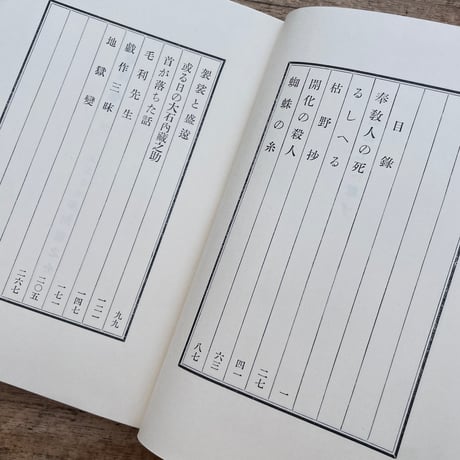 目錄
奉敎人の死 一
るしへる 二七
枯野抄 四一
開化の殺人 六三
蜘蛛の糸 八七
袈裟と盛遠 九九
或る日の大石内藏之助 一二一
首が落ちた話 一四七
毛利先生 一七一
戯作三昧 二〇五
地獄變 二六七